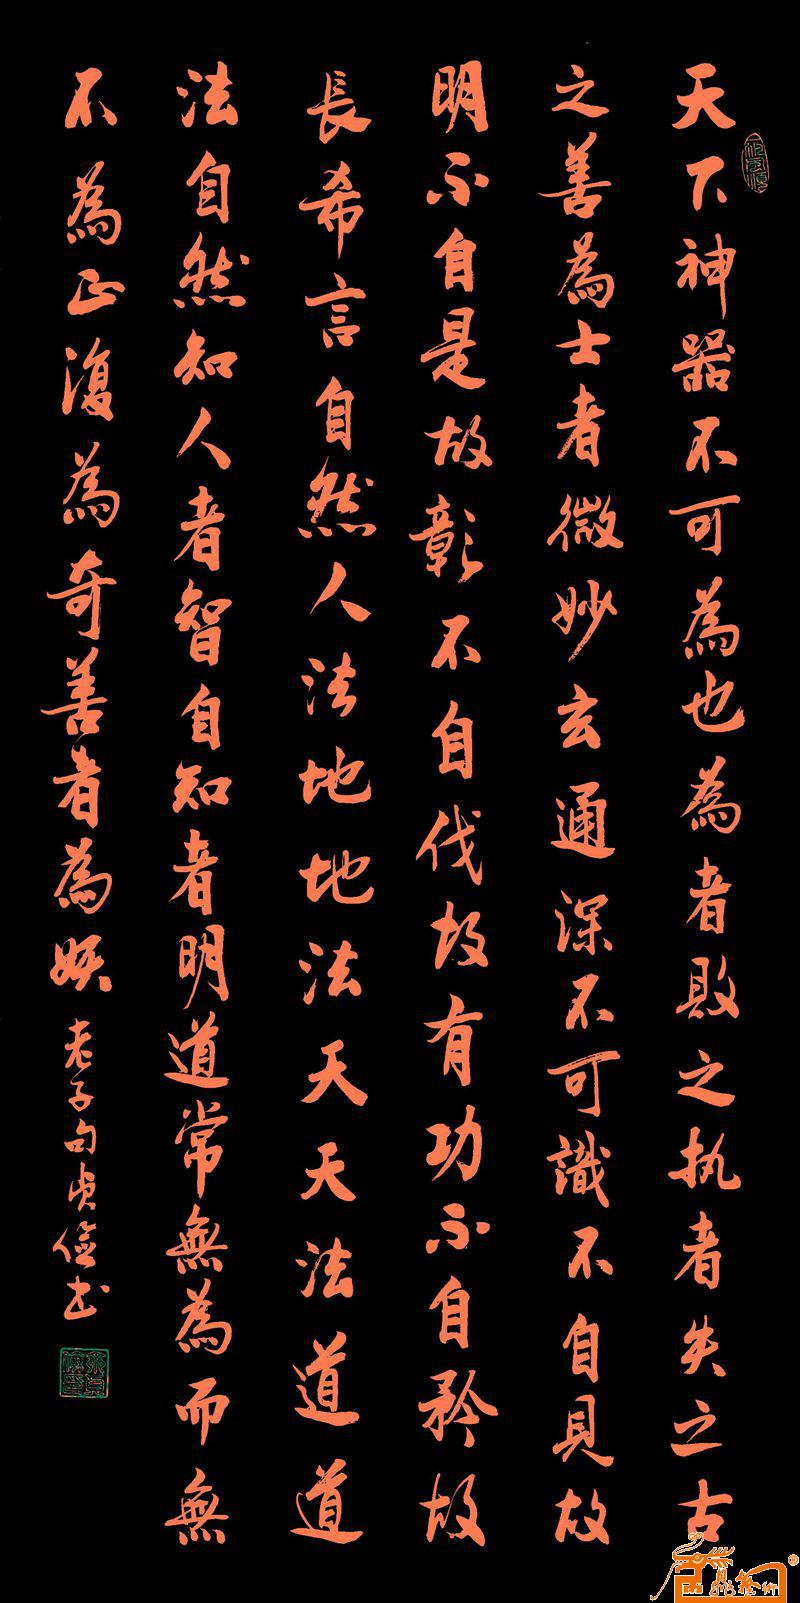 天下神器不可為也為者敗之执者失之古
之善為士者微妙玄通深不可識不自見故
明不自是故彰不自伐故有功不自矜故
長希言自然人法地地法天天法道道
法自然知人者智自知者明道常無為而無
不為正復為奇善者為妖
老子句貞儉书